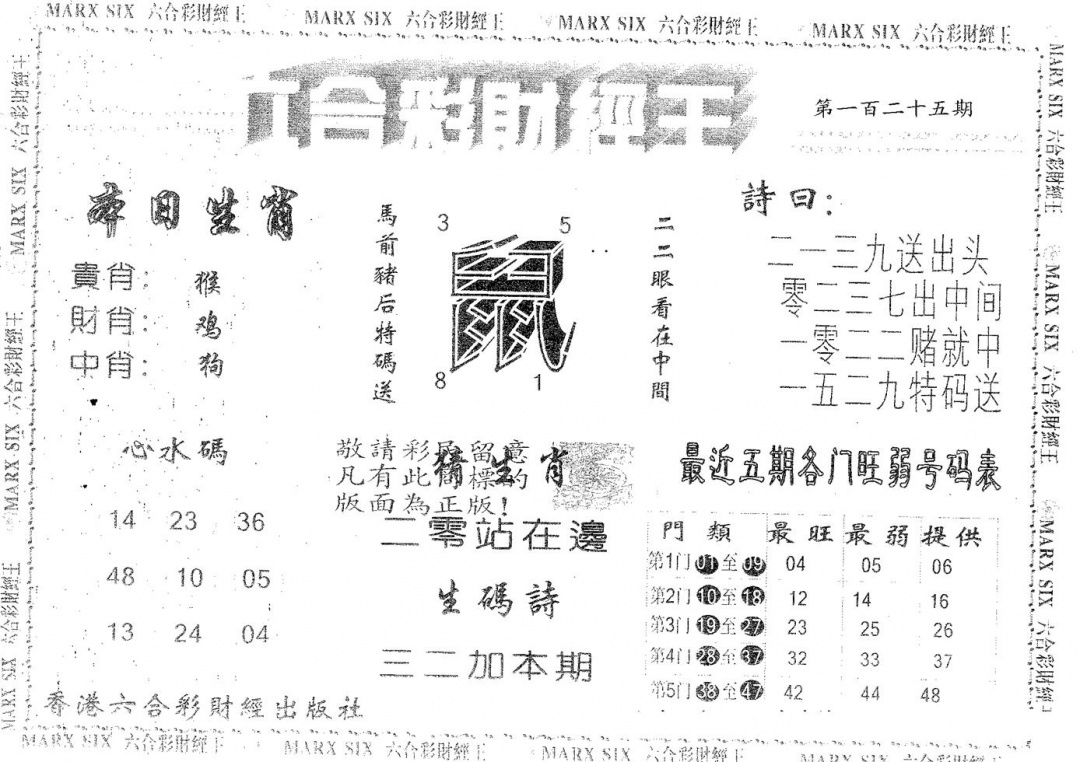 MARX SIX 六合彩財經王 MARX SIX 六合彩財經王 MARX SIX 六合彩財經王 MARX SIX 六合彩財經王
六合彩財經王
第一百二十五期
本日生肖
貴肖: 猴
財肖: 鸡
中肖: 狗
馬前豬后特碼送
3 5
鼠
8 1
二二眼看在中間
詩曰:
二一三九送出头
零二三七出中间
一零二二赌就中
一五二九特码送
心水碼
14 23 36
48 10 05
13 24 04
敬請彩民留意
凡有此商標的
版面為正版!
猜生肖
二零站在邊
生碼詩
三二加本期
最近五期各门旺弱号码表
門類 最旺 最弱 提供
第1门 01至09 04 05 06
第2门 10至18 12 14 16
第3门 19至27 23 25 26
第4门 28至37 32 33 37
第5门 38至47 42 44 48
香港六合彩財經出版社
MARX SIX 六合彩財經王 MARX SIX 六合彩財經王 MARX SIX 六合彩財經王 MARX SIX 六合彩財經王
MARX SIX 六合彩財經王 MARX SIX 六合彩財經王 MARX SIX 六合彩財經王
MARX SIX 六合彩財經王 MARX SIX 六合彩財經王 MARX SIX 六合彩財經王